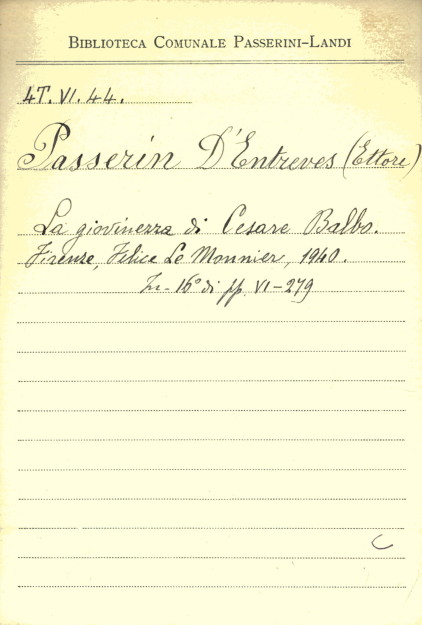 BIBLIOTECA COMUNALE PASSERINI-LANDI
4T. VI. 44.
Passerin D'Entreves (Ettore)
La giovinezza di Cesare Balbo.
Firenze, Felice Le Monnier, 1940.
In-16° di pp. VI-279
C